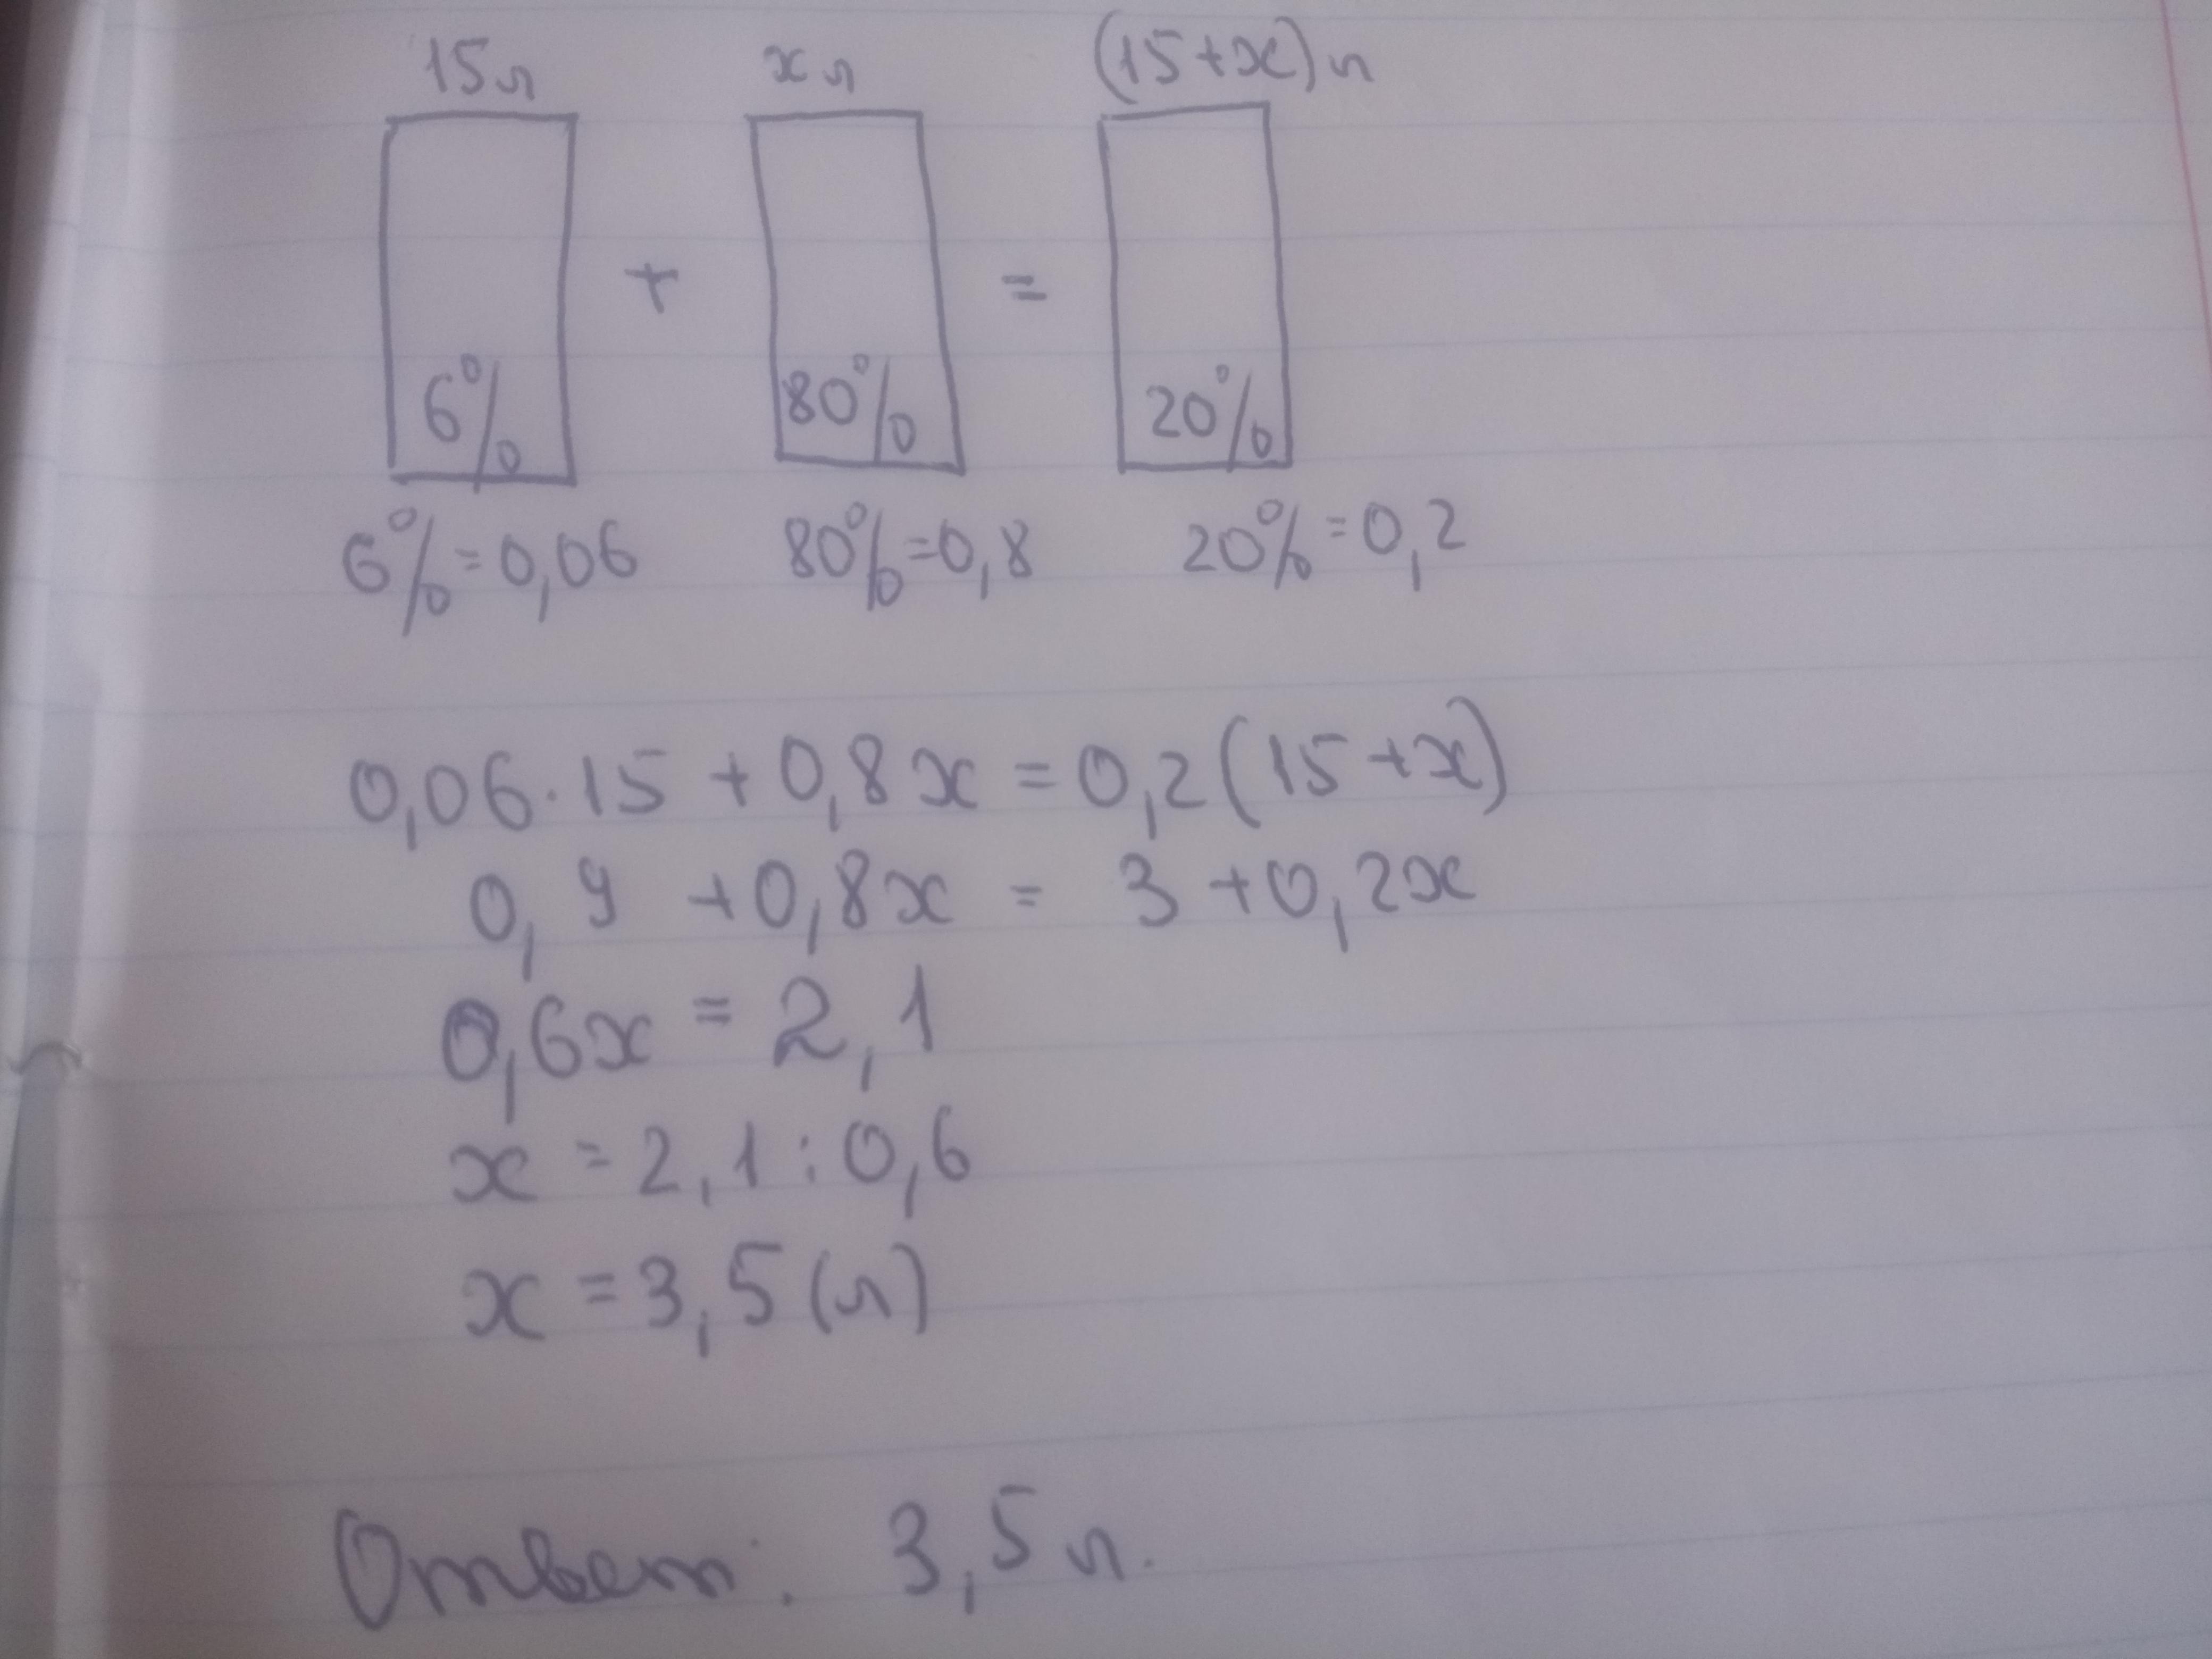 15л xл (15+x)л
6% + 80% = 20%
6%=0,06 80%=0,8 20%=0,2
0,06·15+0,8x=0,2(15+x)
0,9+0,8x=3+0,2x
0,6x=2,1
x=2,1:0,6
x=3,5(л)
Ответ: 3,5л.